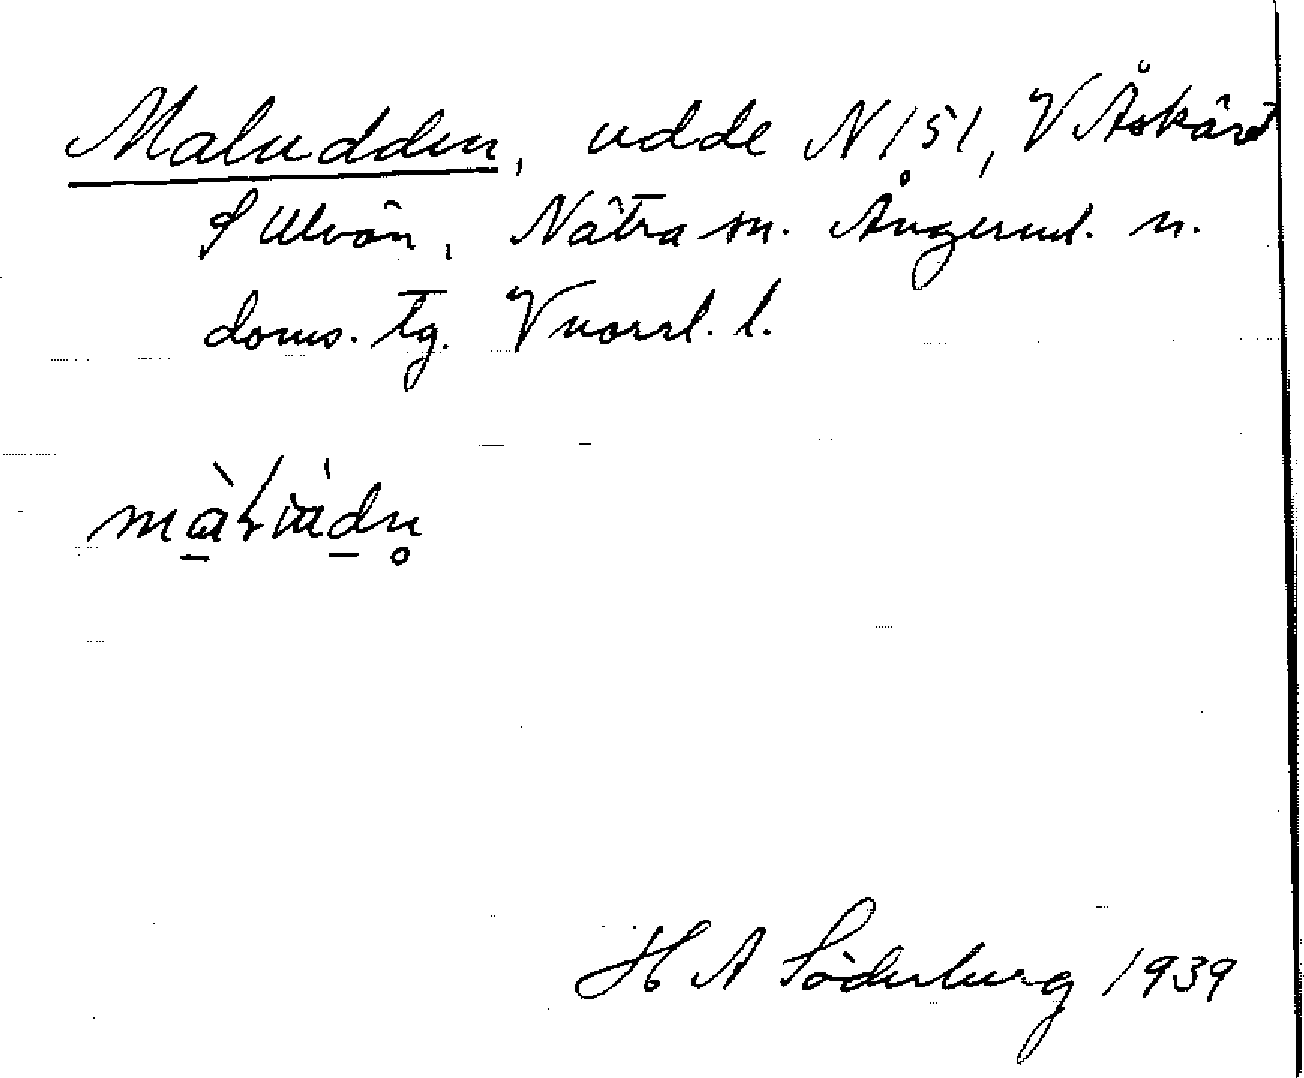 Maludden, udde N 151, V Åskäret
S Ulvön, Nätra sn. Ångerml. n.
doms. tg. V norrl. l.
H A Söderberg 1939